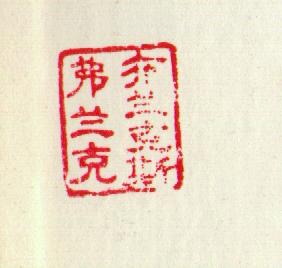 布兰克斯
弗兰克